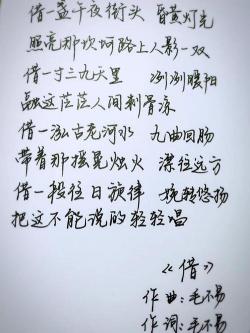 借一盏午夜街头 昏黄灯光
照亮那坎坷路上人影一双
借一寸三九天里 冽冽暖阳
融这茫茫人间刺骨凉
借一泓古老河水 九曲回肠
带着那摇晃烛火 漂往远方
借一段往日旋律 婉转悠扬
把这不能说的轻轻唱
《借》
作曲:毛不易
作词:毛不易